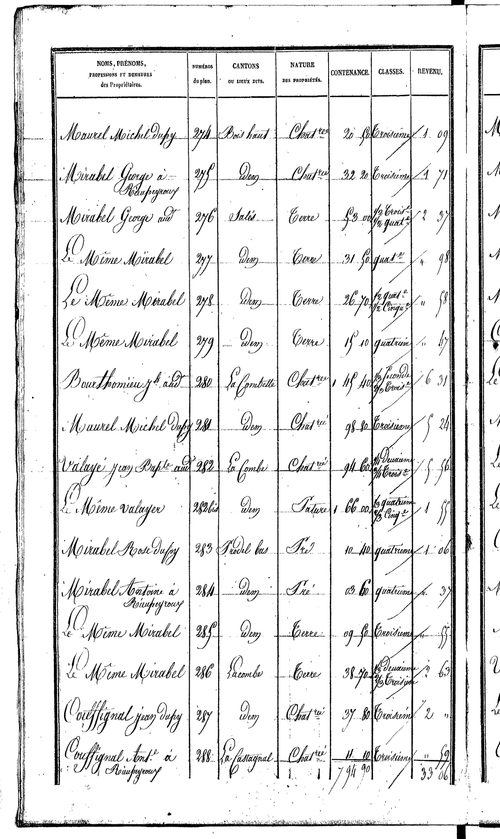 NOMS, PRÉNOMS, PROFESSIONS ET DEMEURES des Propriétaires. NUMÉROS du plan. CANTONS OU LIEUX DITS. NATURE DES PROPRIÉTÉS. CONTENANCE. CLASSES. REVENU.
Maurel Michel dupy 274 Bois haut Chat.ré 20 50 Troisième 1 09
Mirabel George à Rieupeyroux 275 idem Chat.ré 32 20 Troisième 1 71
Mirabel George audt 276 Salès Terre 53 00 1/2 Trois.e 1/2 quat.e 2 37
Le Même Mirabel 277 idem Terre 31 50 quat.e " 98
Le Même Mirabel 278 idem Terre 26 70 1/2 quat.e 1/2 Cinq.e " 58
Le Même Mirabel 279 idem Terre 15 10 quatrième " 47
Bourthomieu audt 280 La Chat.ré 1 45 40 Seconde Trois.e 6 31
Maurel Michel dupy 281 idem Chat.ré 98 80 Troisième 5 24
Valayé jean Bapte audt 282 La Combe Chat.ré 94 60 deuxième Trois.e 5 56
Le Même Valayer 282 bis idem Pature 1 66 00 quatrième Cinq.e 1 55
Mirabel Rose dupy 283 Pradel bas Pré 10 40 quatrième 1 06
Mirabel Antoine à Rieupeyroux 284 idem Pré 03 60 quatrième " 37
Le Même Mirabel 285 idem Terre 09 50 Troisième " 55
Le Même Mirabel 286 Lacombe Terre 38 70 deuxième Troisième 2 63
Couffignal jean dupy 287 idem Chat.ré 37 80 Troisième 2 "
Couffignal Ant.e à Rieupeyroux 288 La Castagnal Chat.ré 11 10 Troisième " 59
7 94 90 33 06